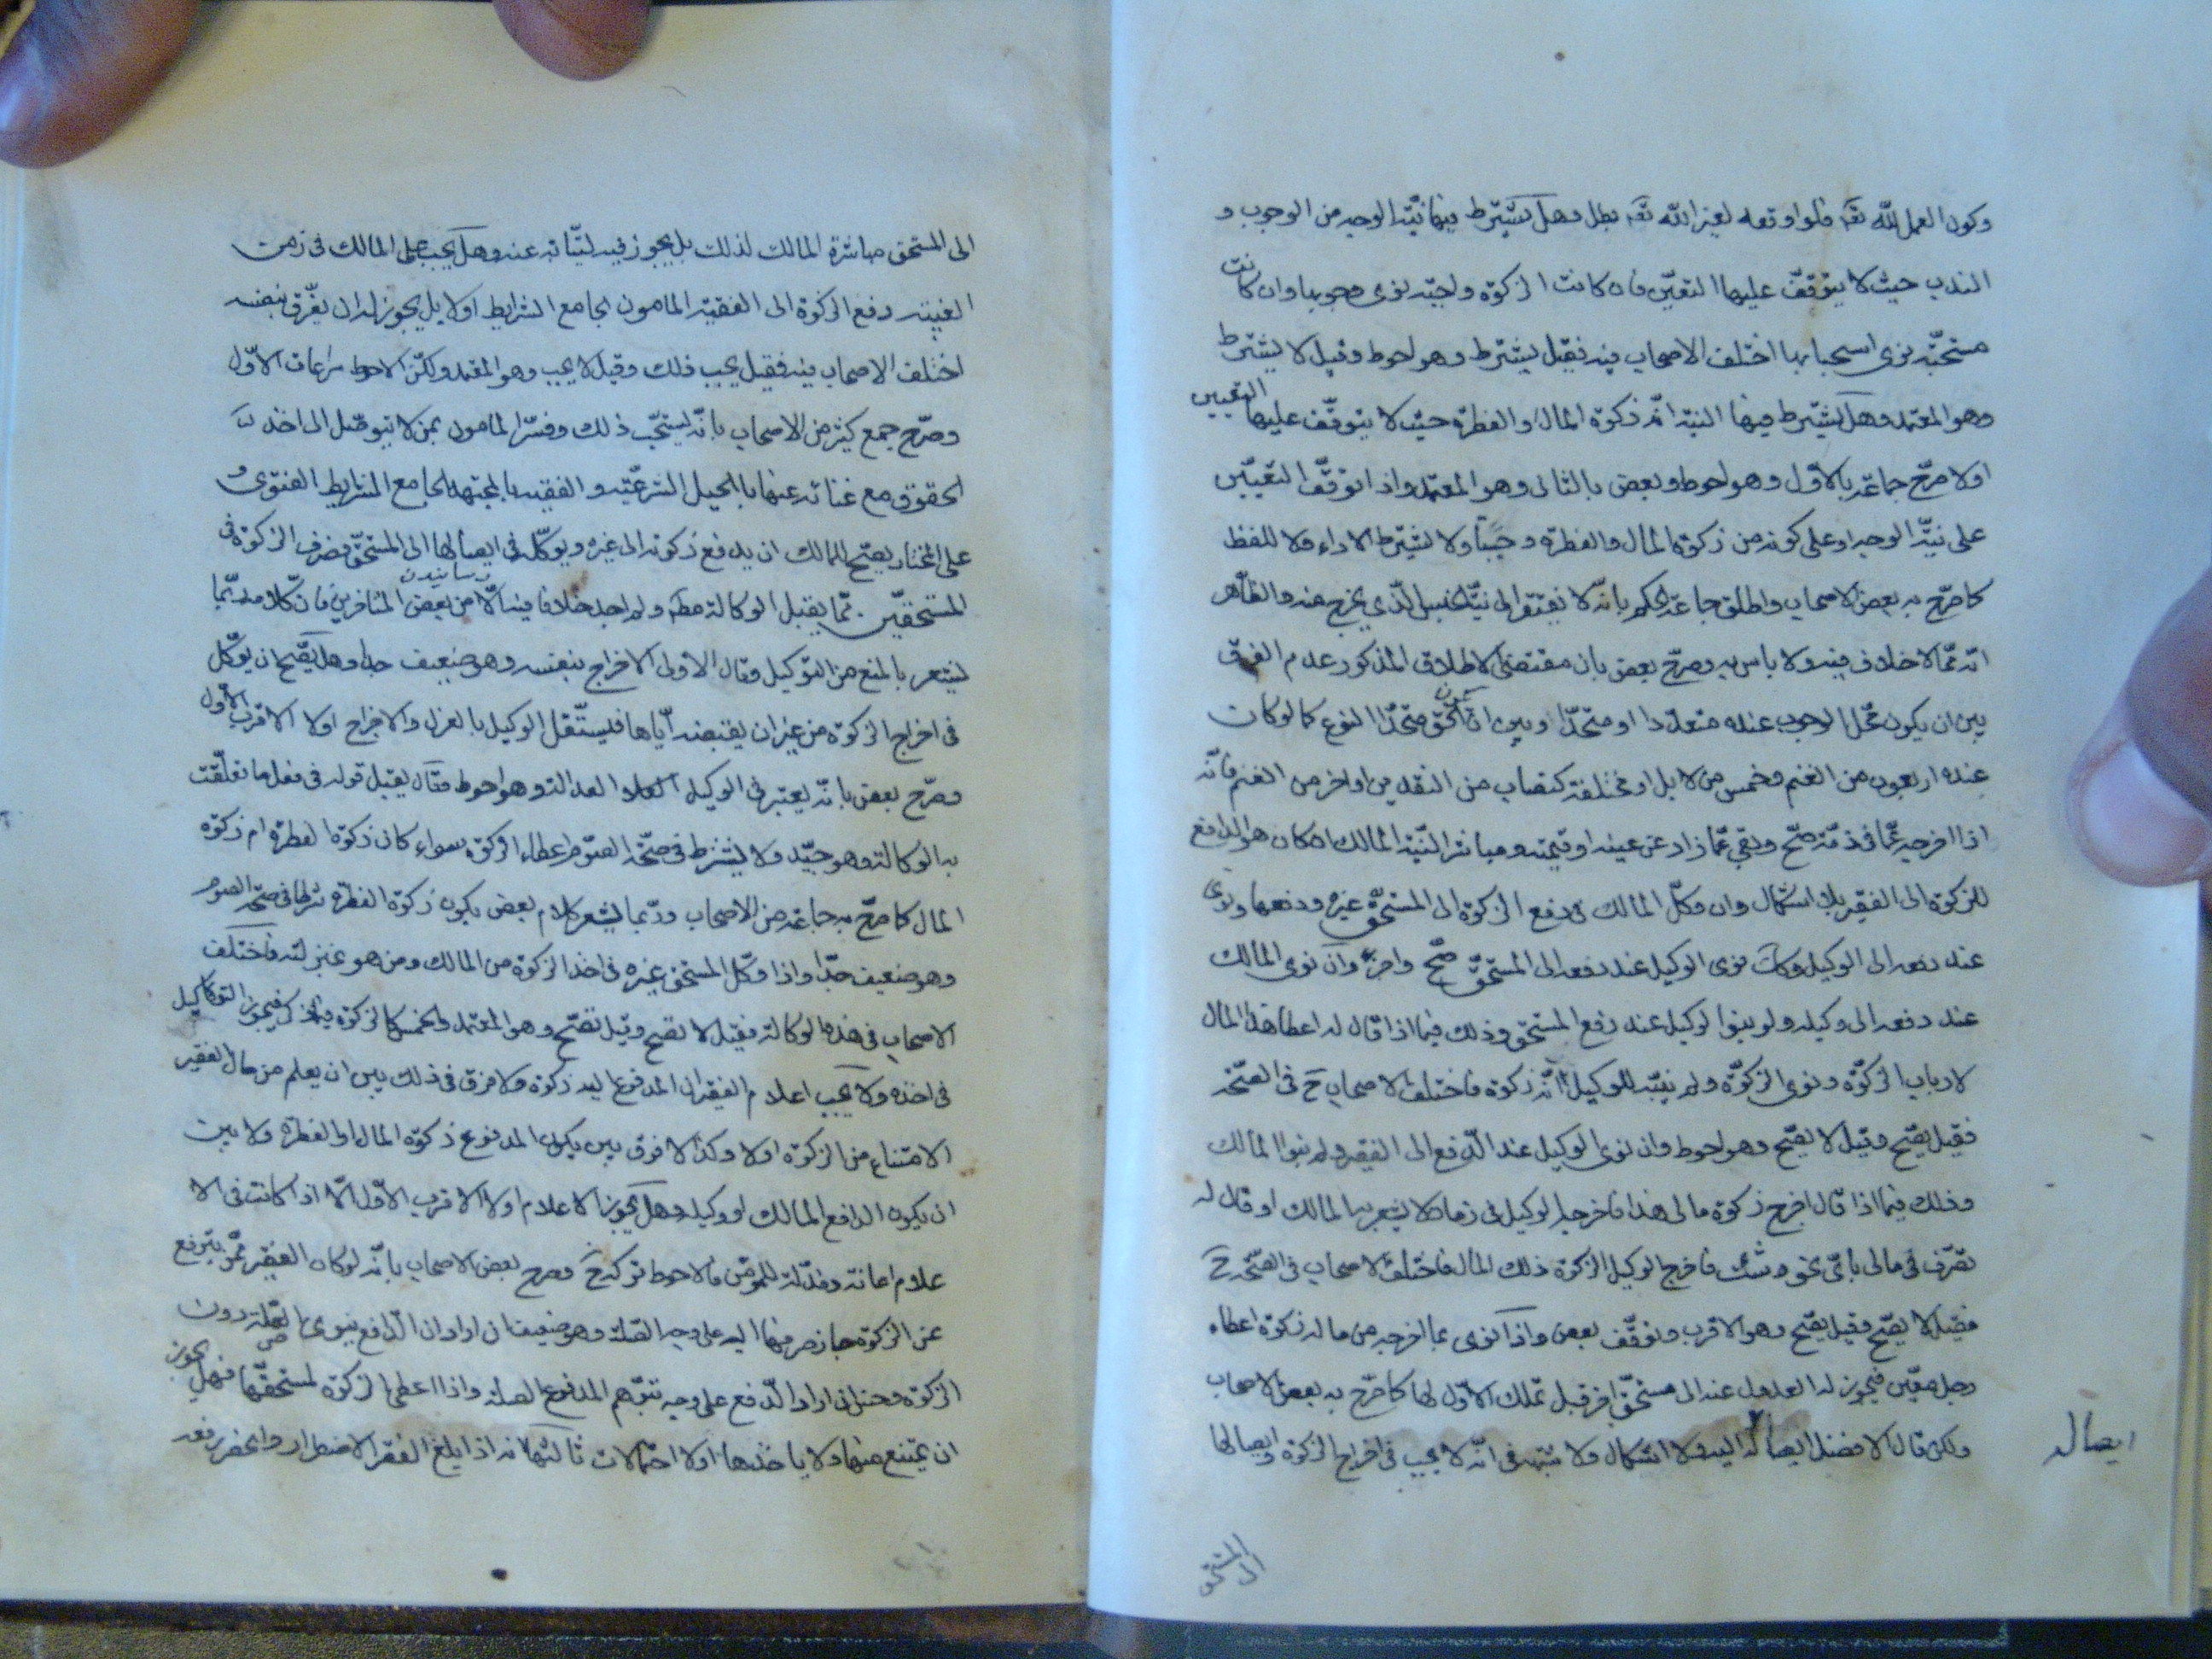 وكون العمل لله تعه فلو اوقعه لغير الله تعه بطل وهل يشترط فيها نيّة الوجه من الوجوب و
الندب حيث لا يتوقّف عليها التعيّن فان كانت الزكوة واجبة نوى وجوبها وان كانت
مستحبّة نوى استحبابها اختلف الاصحاب فيه فقيل يشترط وهو احوط وقيل لا يشترط
وهو المعتمد وهل يشترط فيها النية انّه زكوة المال او الفطرة حيث لا يتوقّف عليها التعيين
اولا صرّح جماعة بالاوّل وهو احوط وبعض بالثانى وهو المعتمد واذا توقّف التعيّين
على نيّة الوجه او على كونه من زكوة المال والفطرة وجبتا ولا يشترط الاداء ولا للفظ
كما صرّح به بعض الاصحاب واطلق جماعة الحكم بانّه لا يفتقر الى نيّة الجنس الّذى يخرج منه والظّاهر
انّه ممّا لا خلاف فيه ولا باس به وصرّح بعض بان مقتضى الاطلاق المذكور عدم الفرق
بين ان يكون محلّ الوجوب عنده متعدّدا او متحدّا وبين ان يكون متحدّا النوع كما لو كان
عنده اربعون من الغنم وخمس من الابل او مختلفة كنصاب من النقدين واخر من الغنم فانّه
اذا اخرجه عمّا فى ذمّته صحّ وبقى عمّا زاد عن عينه او قيمته ومباشر النّية المالك ان كان هو الدافع
للزكوة الى الفقير بلا اشكال وان وكّل المالك فى دفع الزكوة الى المستحقّ غيره ودفعها ونوى
عند دفعه الى الوكيل وكان نوى الوكيل عند دفعه الى المستحقّ صحّ واجزء وان نوى المالك
عند دفعه الى وكيله ولو ينوا لوكيل عند دفع المستحق وذلك فيما اذا قال له اعطا هذا المال
لارباب الزكوّة ونوى الزكوّة ولم ينبّه للوكيل انّه زكوة فاختلف الاصحاب ح فى الصّحّة
فقيل يصّح وقيل لا يصّح وهو احوط وان نوى الوكيل عند الدّفع الى الفقير ولم ينوا لمالك
وذلك فيما اذا قال اخرج زكوة مالى هذا فاخرجه الوكيل فى زمان لا يشعر به المالك او قال له
تصّرف فى مالى باىّ نحو وشئت فاخرج الوكيل الزكوة ذلك المال فاختلف الاصحاب فى الصّحّة ح
فقيل لا يصّح وقيل يصّح وهو الاقرب وتوقّف بعض واذا نوى بما اخرجه من ماله زكوة اعطاء
رجل معيّن فيجوز له العدول عنه الى مستحقّ اخر قبل تملك الاوّل لها كما صرّح به بعض الاصحاب
ولكن قال الافضل ايصاله اليه ولا اشكال ولا شبهة فى انّه لا يجب فى اخراج الزكوة وايصالها
ايصاله
الى المستحق
الى المستحق مباشرة المالك لذلك بل يجوز فيه لنيّابة عنه وهل يجب على المالك فى زمن
الغيبة دفع الزكوة الى الفقيه المامون الجامع الشرايط اولا بل يجوز له ان يفّرق بنفسه
اختلف الاصحاب فيه فقيل يجب ذلك وقيل لا يجب وهو المعتمد ولكنّ الاحوط مراعات الاوّل
وصرّح جمع كثير من الاصحاب بانّه يستحّب ذلك وفسّر المامون بمن لا يتوصّل الى اخذ
الحقوق مع غنائه عنها بالحيل الشرعيّة والفقيه بالمجتهد الجامع الشرايط الفتوى و
على المختار يصّح للمالك ان يدفع زكوته الى غيره ويوكّله فى ايصالها الى المستحقّ وصرف الزكوة فى
رسانيدن
المستحقّين ممّا يقبل الوكالة مطه ولم اجد خلافا فيه الّا من بعض المتاخرين فان كلامه ربّما
يشعر بالمنع من التوكيل وقال الاولى الاخراج بنفسه وهو ضعيف جدا وهل يصّح ان يوكّل
فى اخراج الزكوة من غير ان يقبضه ايّاها فليستّقل الوكيل بالعزل والاخراج اولا الاقرب الاوّل
وصرّح بعض بانّه يعتبر فى الوكيل العدالة وهو احوط وقال يقبل قوله فى فعل ما تعلّقت
به الوكالة وهو جيّد ولا يشترط فى صحّة الصّوم اعطاء الزكوة سواء كان زكوة الفطرة ام زكوة
المال كما صرّح به جماعة من الاصحاب وربّما يشعر كلام بعض بكون زكوة الفطرة شرطا فى صحّة الصوم
وهو ضعيف جدّا واذا وكّل المستحق غيره فى اخذ الزكوة من المالك ومن هو بمنزلته فاختلف
الاصحاب فى هذه الوكالة فقيل لا تصح وقيل تصّح وهو المعتمد والخمس كالزكوة فيما ذكر فيجوز التوكيل
فى اخذه ولا يجب اعلام الفقير ان المدفوع اليه زكوة ولا فرق فى ذلك بين ان يعلم من حال الفقير
الامتناع من الزكوة اولا وكذا لا فرق بين يكون المدفوع زكوة المال او الفطرة ولا بين
ان يكون الدافع المالك او وكيله وهل يجوز الاعلام اولا الاقرب الاوّل الّا اذا كانت فى الا
علام اهانة ومذلّة للمؤمن فالاحوط تركه ح وصرح بعض الاصحاب بانّه لو كان الفقير ممّن يترفع
عن الزكوة جاز صرفها اليه على وجه الصّلة وهو ضعيف ان اراد ان الدّافع ينوى الصّلة دون
الزكوة وحسن ان اراد الدّفع على وجه يتوّهم المدفوع الصلة واذا اعطى الزكوة لمستحقّها فهل يجوز
ان يمتنع منها ولا ياخذها اولا احتمالات ثالثها انه اذا بلغ الفقر الاضطرار وانحصر رفعه